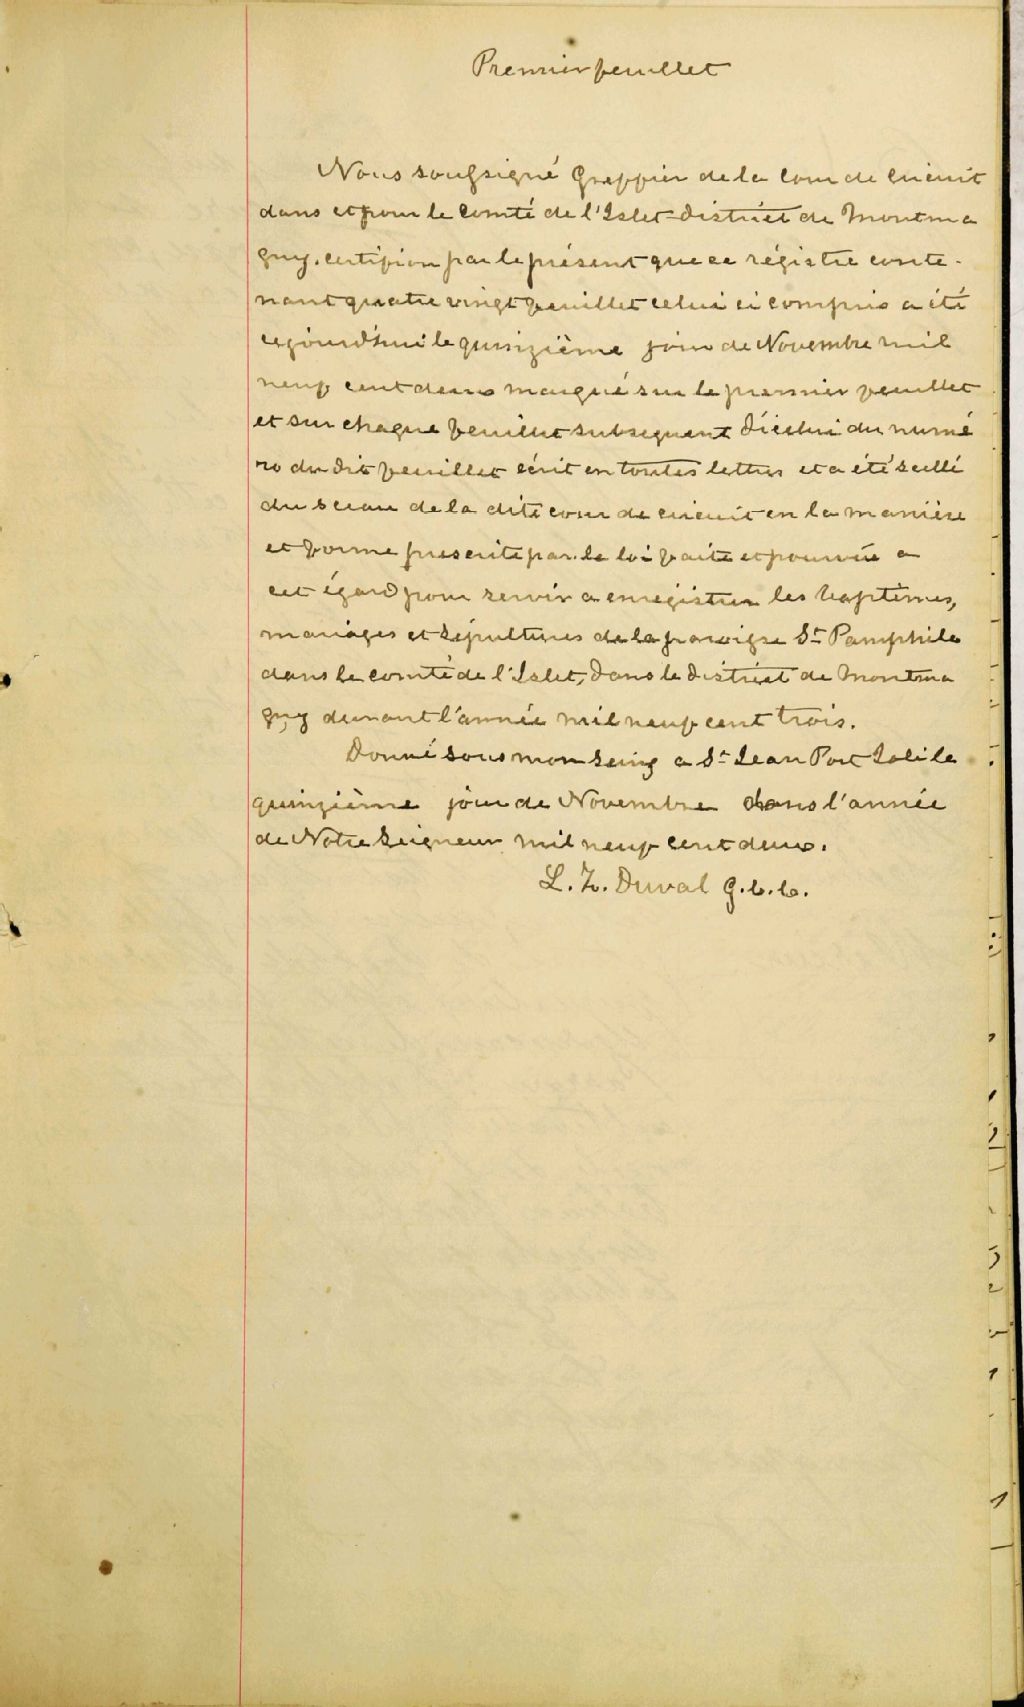 Premier feuillet
Nous soussigné Greffier de la Cour de Circuit
dans et pour le Comté de l'Islet district de Montma
gny. certifion par le présent que ce régistre conte-
nant quatre vingt feuillet celui ci compris a été
cejourd'hui le quinzième jour de Novembre mil
neuf cent deux marqué sur le premier feuillet
et sur chaque feuillet subsequent d'icelui du numé
ro du dit feuillet écrit en toutes lettres et a été scellé
du sceau de la dite cour de circuit en la manière
et forme prescrite par la loi faite et pourvue a
cet égard pour servir a enregistrer les baptêmes,
mariages et sépultures de la paroisse St Pamphile
dans le comté de l'Islet, dans le district de Montma
gny durant l'année mil neuf cent trois.
Donné sous mon seing a St Jean Port Joli le
quinzième jour de Novembre dans l'année
de Notre Seigneur mil neuf cent deux.
L. Z. Duval G.C.C.